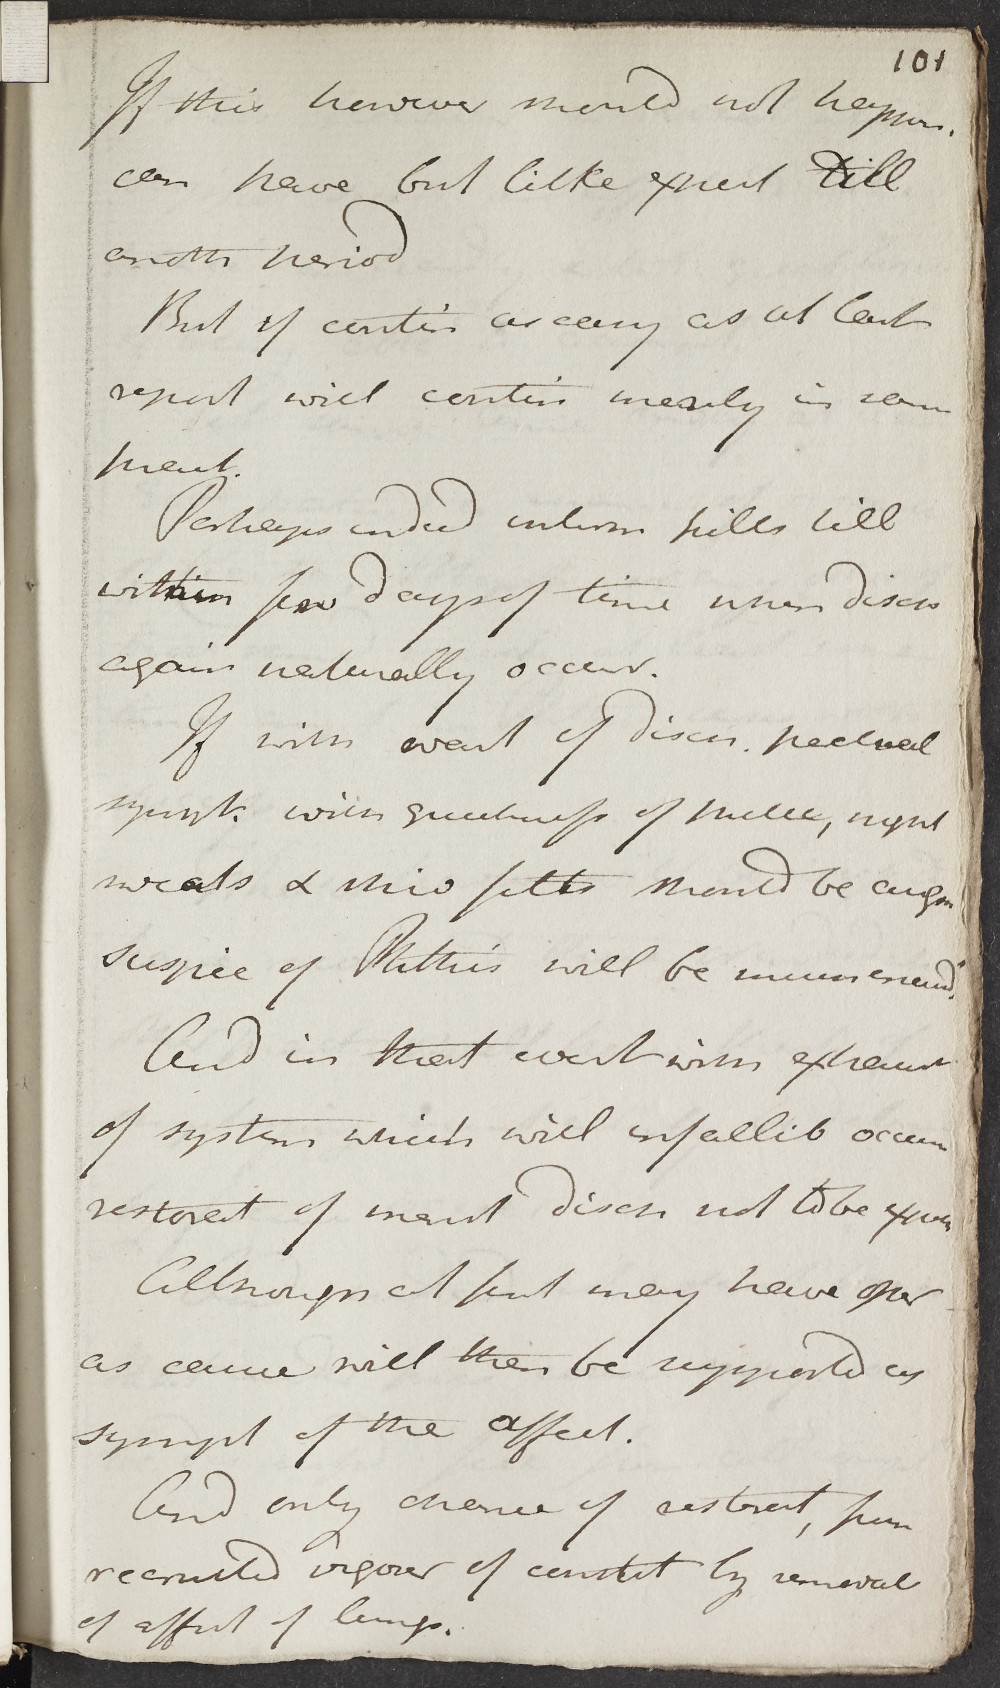 101
If this however should not happen.
can have but little expect till
anoth period
But if contin as easy as at last
report will contin merely in sam
ment.
Perhaps indeed interm pills till
within few days of time when disch
again naturally occur.
If with want of disch. pectoral
sympt. with quickness of pulse, night
sweats & shiv fitts should be augm
suspic of Phthis will be
And in that event with exhaust
of system which will infallib occur
restorat of menst disch not to be expec
Although at first may have oper
as cause will then be supported as
sympt of the affect.
And only chance of restorat, from
recruited vigour of constit by removal
of affect of lungs.